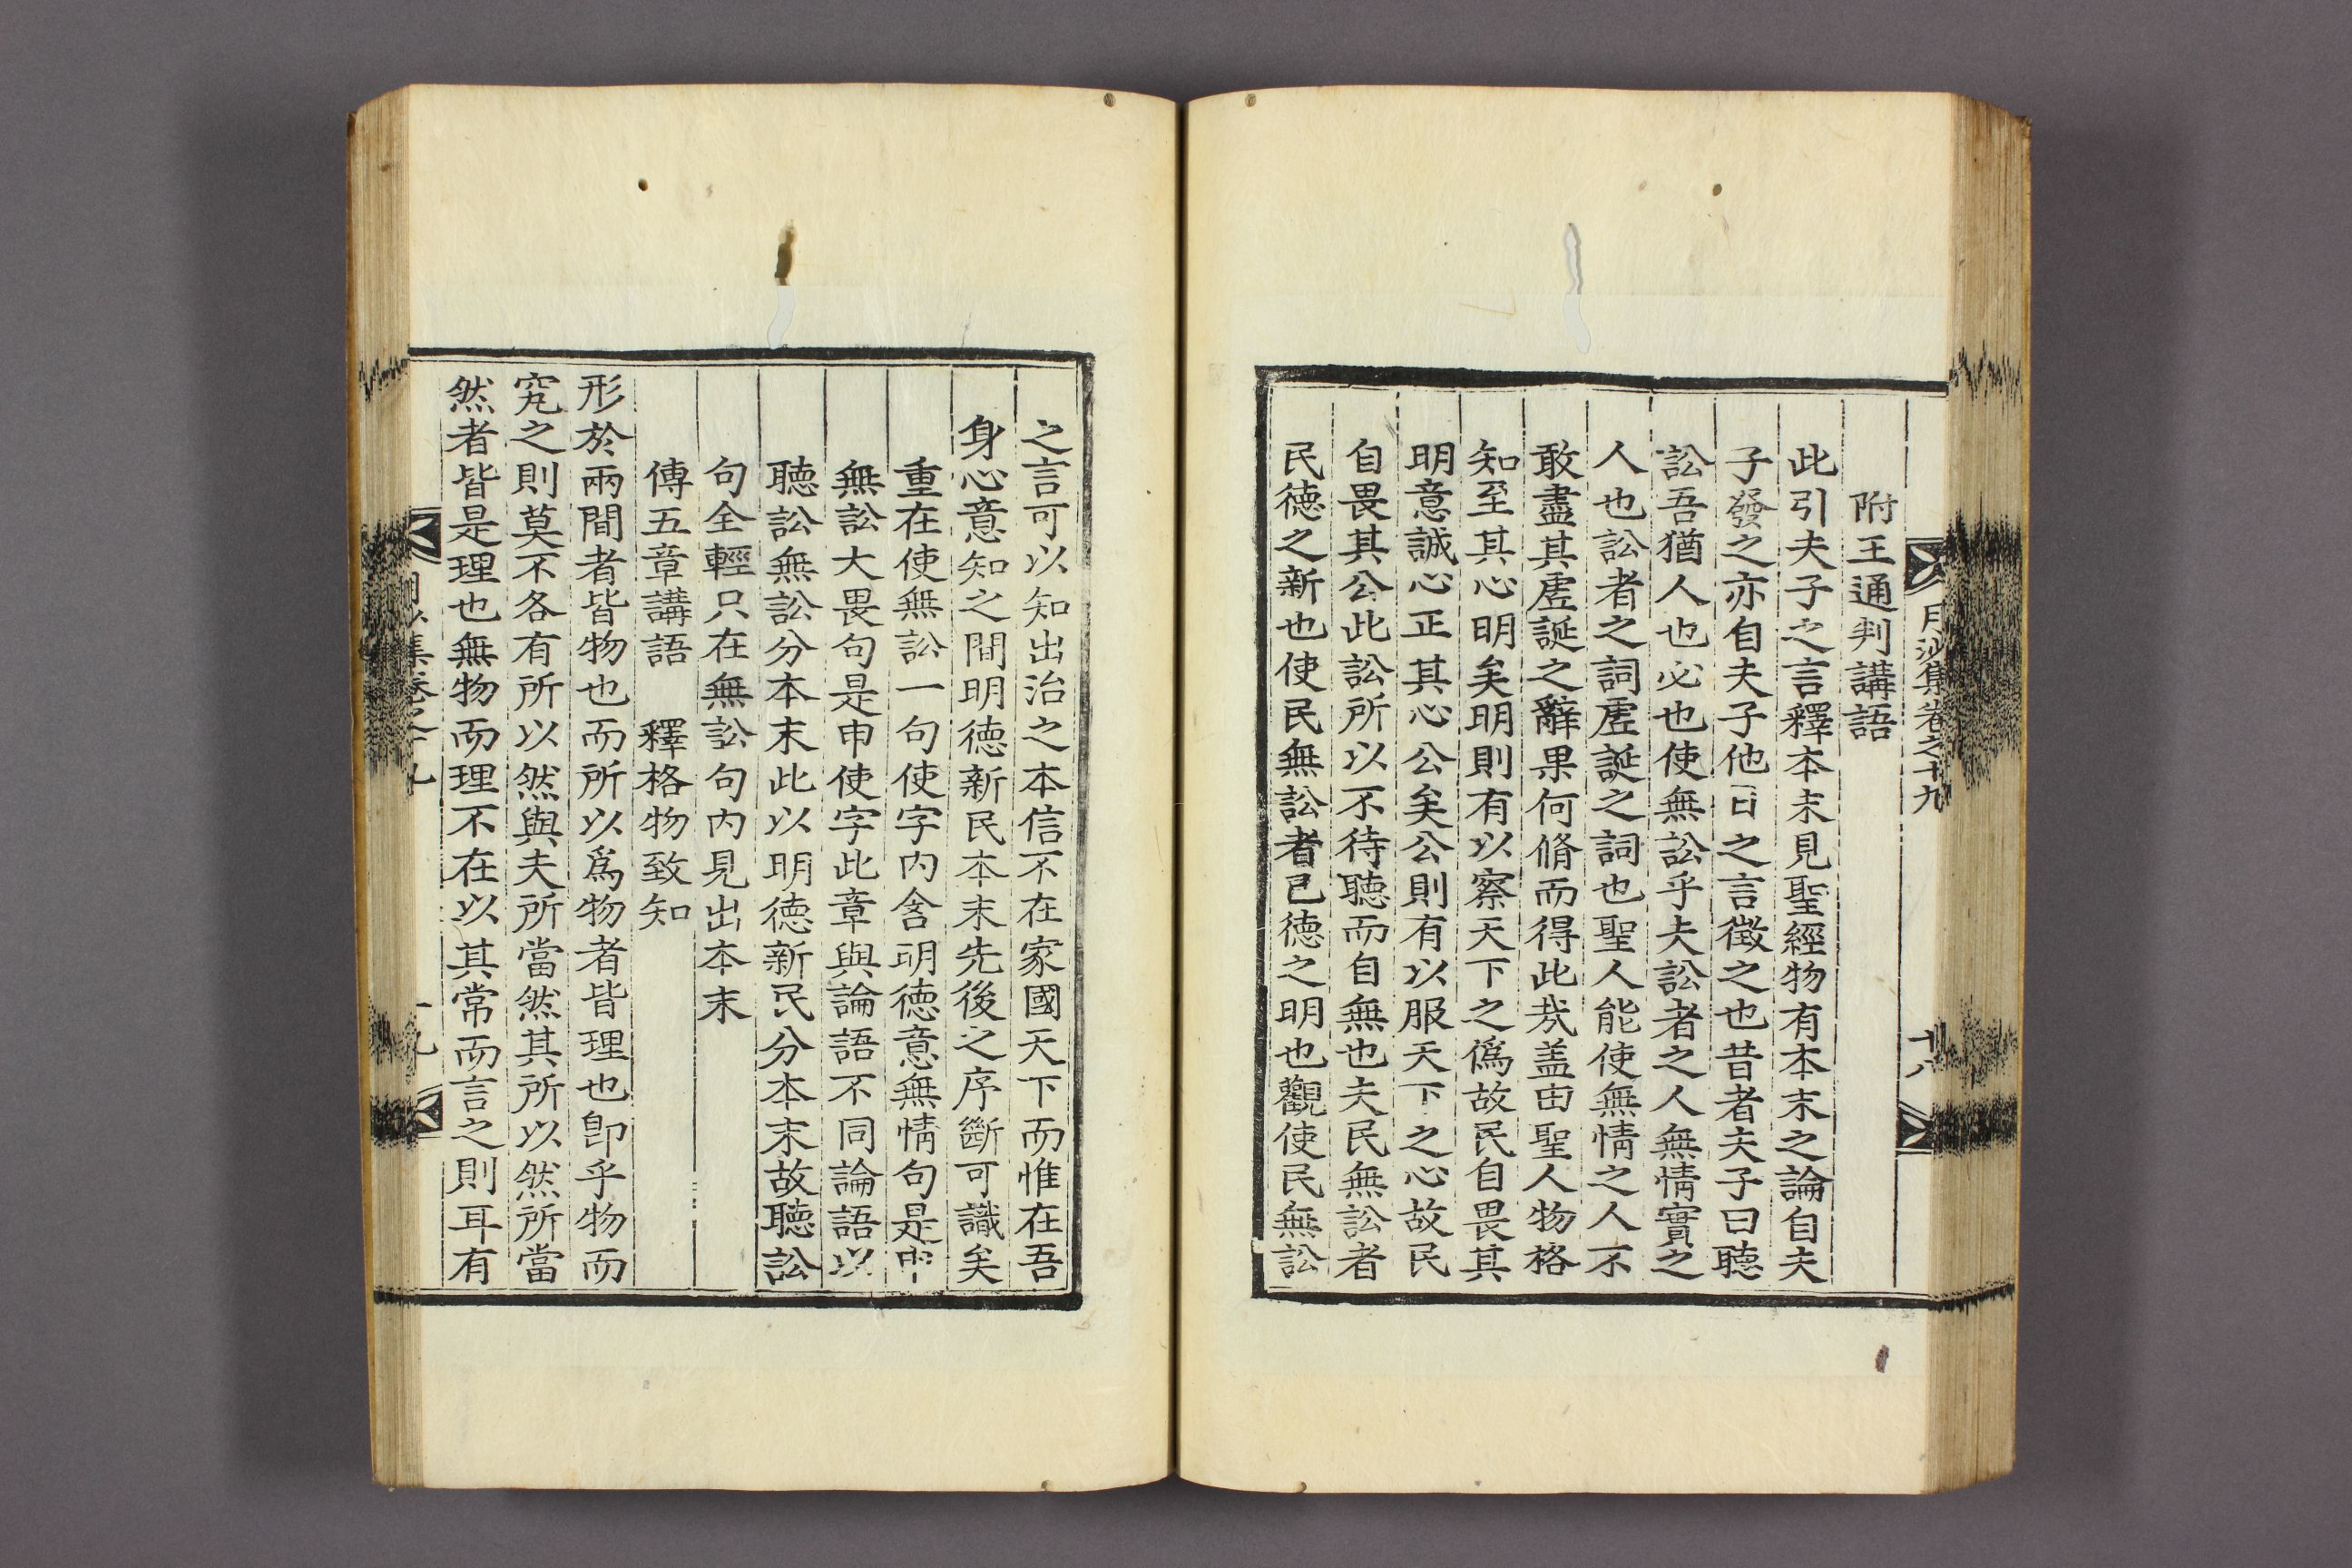 月沙集卷之十九
十八
附王通判講語
此引夫子之言釋本末見聖經物有本末之論自夫
子發之亦自夫子他日之言徵之也昔者夫子曰聽
訟吾猶人也必也使無訟乎夫訟者之人無情實之
人也訟者之詞虗誕之詞也聖人能使無情之人不
敢盡其虗誕之辭果何脩而得此㢤盖由聖人物格
知至其心明矣明則有以察天下之僞故民自畏其
明意誠心正其心公矣公則有以服天下之心故民
自畏其公此訟所以不待聽而自無也夫民無訟者
民德之新也使民無訟者己德之明也觀使民無訟
之言可以知出治之本信不在家國天下而惟在吾
身心意知之間明德新民本末先後之序斷可識矣
重在使無訟一句使字内含明德意無情句是申
無訟大畏句是申使字此章與論語不同論語以
聽訟無訟分本末此以明德新民分本末故聽訟
句全輕只在無訟句内見出本末
傳五章講語　釋格物致知
形於兩間者皆物也而所以爲物者皆理也卽乎物而
究之則莫不各有所以然與夫所當然其所以然所當
然者皆是理也無物而理不在以其常而言之則耳有
集卷之十九
十九